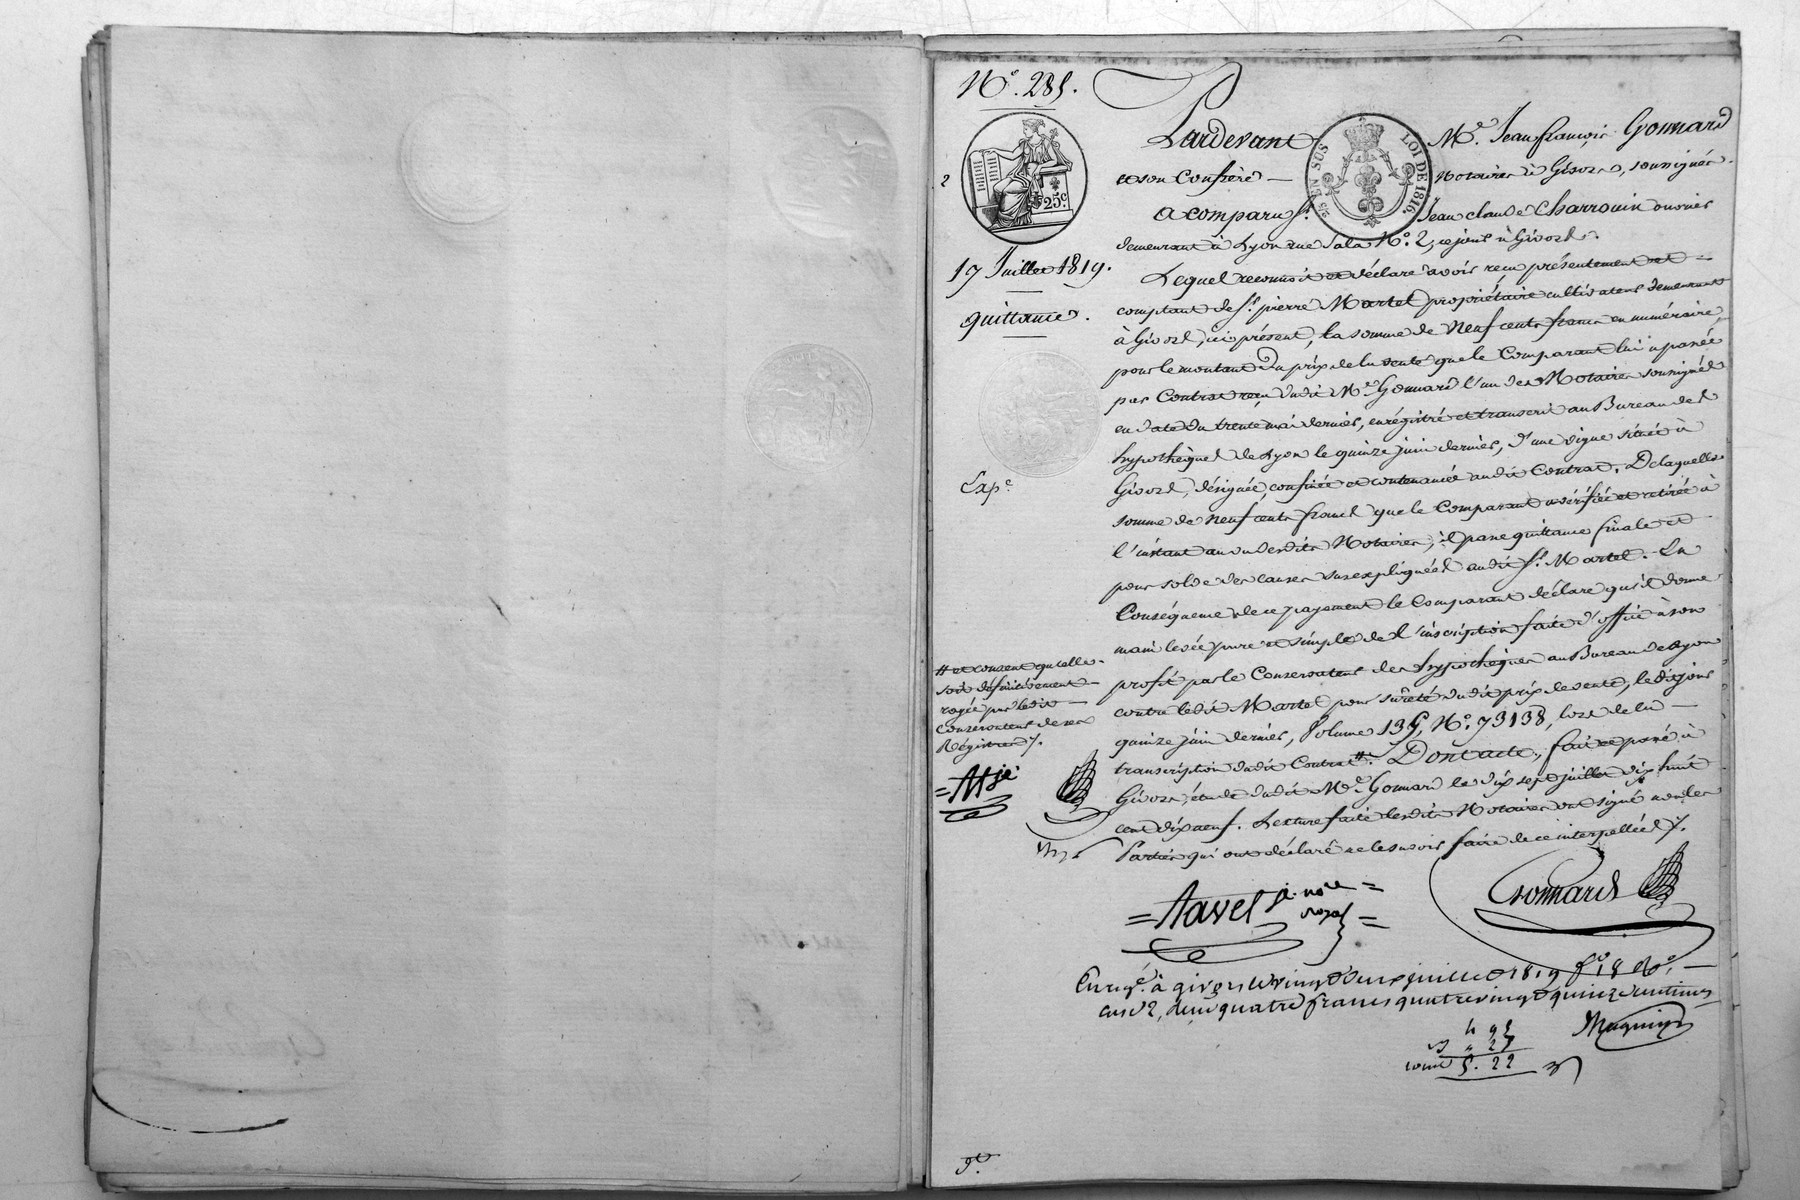 N.° 285.
Pardevant Me. Jean françois Gonnard
2
25c.
EN SUS
LOI DE 1816.
et son Confrère — Notaires à Givors, soussignés.
A comparu Sr. Jean claude Charrouin ouvrier
demeurant à Lyon rue Sala N.° 2, ce jour à Givors.
17 Juillet 1819.
Lequel reconnoit et déclare avoir reçu présentement et —
quittance.
comptant de Sr. pierre Martel propriétaire cultivateur demeurant
à Givors, ici présent, la somme de Neuf cents francs en numéraire,
pour le montant du prix de la vente que le Comparant lui a passée
par Contrat reçu dudit Me. Gonnard l'un des Notaires soussignés
en date du trente mai dernier, enrégistré et transcrit au Bureau des
hypothèques de Lyon le quinze juin dernier, d'une vigne située à
Expe.
Givors, désignée, confinée et contenancée audit Contrat. De laquelle
somme de Neuf cents francs que le Comparant a vérifiée et retirée à
l'instant au vu desdits Notaires, il passe quittance finale et
pour solde des causes susexpliquées audit Sr. Martel. En
Conséquence de ce payement le Comparant déclare qu'il donne
main levée pure et simple de l'inscription faite d'office à son
profit par le Conservateur des hypothèques au Bureau de Lyon
contre ledit Martel pour sûreté dudit prix de vente, ledit jour
quinze juin dernier, Volume 135, N.° 73138, lors de la —
transcription dudit Contrat #. Dont acte, fait et passé à
Givors, étude dudit Me. Gonnard le dix sept juillet dix huit
cent dix neuf. Lecture faite lesdits Notaires ont signé non les
Parties qui ont déclaré ne le savoir faire de ce interpellées /.
# et consent qu'elle
soit définitivement
rayée par ledit —
Conservateur de ses
Régistres /.
= Tavel je. nore =
royal =
Gonnard
Enregé. à givors le vingt deux juillet 1819 fo. 18 Ro. —
case 2, reçu quatre francs quatre vingt quinze centimes
4 95
Maguin
" 27
5. 22